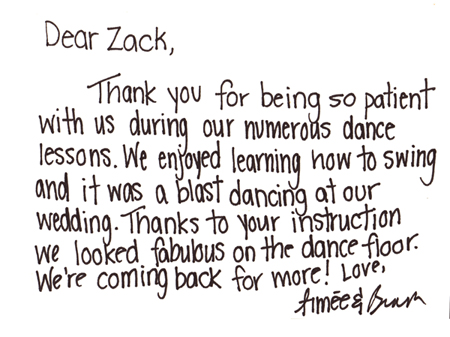 Dear Zack,
Thank you for being so patient
with us during our numerous dance
lessons. We enjoyed learning how to swing
and it was a blast dancing at our
wedding. Thanks to your instruction
we looked fabulous on the dance floor.
We're coming back for more! Love,
Aimée &